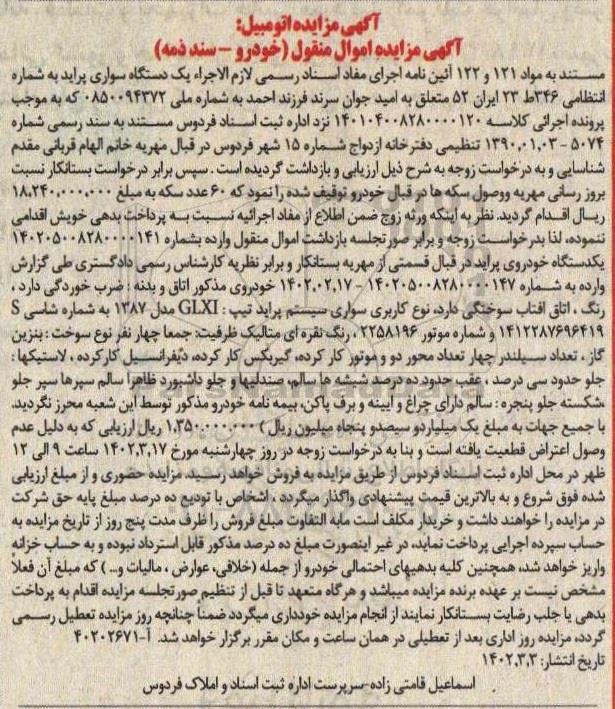 آگهی مزایده اتومبیل:
آگهی مزایده اموال منقول (خودرو – سند ذمه)
مستند به مواد ۱۲۱ و ۱۲۲ آئین نامه اجرای مفاد اسناد رسمی لازم الاجراء یک دستگاه سواری پراید به شماره
انتظامی ۳۴۶ط ۲۳ ایران ۵۲ متعلق به امید جوان سرند فرزند احمد به شماره ملی ۰۸۵۰۰۹۴۳۷۲ که به موجب
پرونده اجرائی کلاسه ۱۴۰۱۰۴۰۰۸۲۸۰۰۰۰۱۲۰ نزد اداره ثبت اسناد فردوس مستند به سند رسمی شماره
۵۰۷۴ – ۱۳۹۰،۰۱،۰۳ تنظیمی دفترخانه ازدواج شماره ۱۵ شهر فردوس در قبال مهریه خانم الهام قربانی مقدم
شناسایی و به درخواست زوجه به شرح ذیل ارزیابی و بازداشت گردیده است . سپس برابر درخواست بستانکار نسبت
بروز رسانی مهریه ووصول سکه ها در قبال خودرو توقیف شده را نمود که ۶۰ عدد سکه به مبلغ ۱۸،۲۴۰،۰۰۰،۰۰۰
ریـال اقـدام گردید. نظر به اینکه ورثه زوج ضمن اطلاع از مفاد اجرائیه نسبت بـه پرداخت بدهی خویش اقدامی
ننموده، لذا بدرخواست زوجه و برابر صورتجلسه بازداشت اموال منقول وارده بشماره ۱۴۰۲۰۵۰۰۸۲۸۰۰۰۰۱۴۱
یکدستگاه خودروی پراید در قبال قسمتی از مهریه بستانکار و برابر نظریه کارشناس رسمی دادگستری طی گزارش
وارده به شماره ۱۴۰۲۰۵۰۰۸۲۸۰۰۰۰۱۴۷ – ۱۴۰۲،۰۲،۱۷ خودروی مذکور اتاق و بدنه : ضرب خوردگی دارد ،
رنگ ، اتاق آفتاب سوختگی دارد، نوع کاربری سواری سیستم پراید تیپ : GLXI مدل ۱۳۸۷ به شماره شاسی S
۱۴۱۲۲۸۷۶۹۶۴۱۹ و شماره موتور ۲۲۵۸۱۹۶ ، رنگ نقره ای متالیک ظرفیت: جمعا چهار نفر نوع سوخت : بنزین
گاز ، تعداد سیلندر چهار تعداد محور دو و موتور کار کرده، گیربکس کار کرده، دیفرانسیل کارکرده ، لاستیکها :
جلو حدود سی درصد ، عقب حدود ده درصد شیشه ها سالم، صندلیها و جلو داشبورد ظاهرا سالم سپرها سپر جلو
شکسته جلو پنجره : سالم دارای چراغ و آیینه و برف پاکن، بیمه نامه خودرو مذکور توسط این شعبه محرز نگردید.
با جمیع جهات به مبلغ یک میلیاردو سیصدو پنجاه میلیون ریال ) ۱،۳۵۰،۰۰۰،۰۰۰ ریال ارزیابی که به دلیل عدم
وصول اعتراض قطعیت یافته است و بنا به درخواست زوجه در روز چهارشنبه مورخ ۱۴۰۲،۳،۱۷ ساعت ۹ الی ۱۲
ظهر در محل اداره ثبت اسناد فردوس از طریق مزایده به فروش خواهد رسید. مزایده حضوری و از مبلغ ارزیابی
شده فوق شروع و به بالاترین قیمت پیشنهادی واگذار میگردد ، اشخاص با تودیع ده درصد مبلغ پایه حق شرکت
در مزایده را خواهند داشت و خریدار مکلف است مابه التفاوت مبلغ فروش را ظرف مدت پنج روز از تاریخ مزایده به
حساب سپرده اجرایی پرداخت نماید، در غیر اینصورت مبلغ ده درصد مذکور قابل استرداد نبوده و به حساب خزانه
واریز خواهد شد، همچنین کلیه بدهیهای احتمالی خودرو از جمله (خلافی، عوارض ، مالیات و... ) که مبلغ آن فعلاً
مشخص نیست بر عهده برنده مزایده میباشد و هرگاه متعهد تا قبل از تنظیم صورتجلسه مزایده اقدام به پرداخت
بدهی یا جلب رضایت بستانکار نمایند از انجام مزایده خودداری میگردد ضمناً چنانچه روز مزایده تعطیل رسمی
گردد، مزایده روز اداری بعد از تعطیلی در همان ساعت و مکان مقرر برگزار خواهد شد. آ-۴۰۲۰۲۶۷۱
تاریخ انتشار: ۱۴۰۲،۳،۳
اسماعیل قامتی زاده-سرپرست اداره ثبت اسناد و املاک فردوس